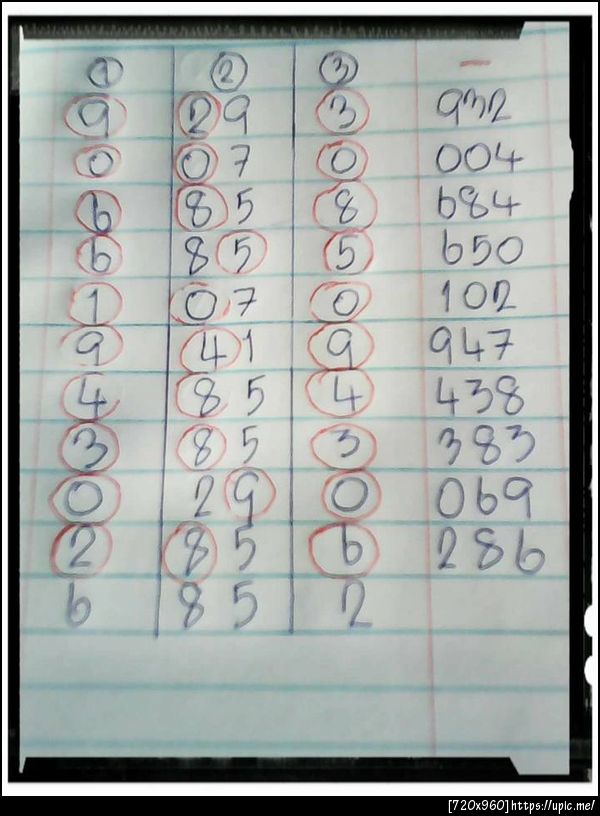 1 2 3 –
9 29 3 932
0 07 0 004
6 85 8 684
6 85 5 650
1 07 0 102
9 41 9 947
4 85 4 438
3 85 3 383
0 29 0 069
2 85 6 286
6 85 2
[720x960]https://upic.me/